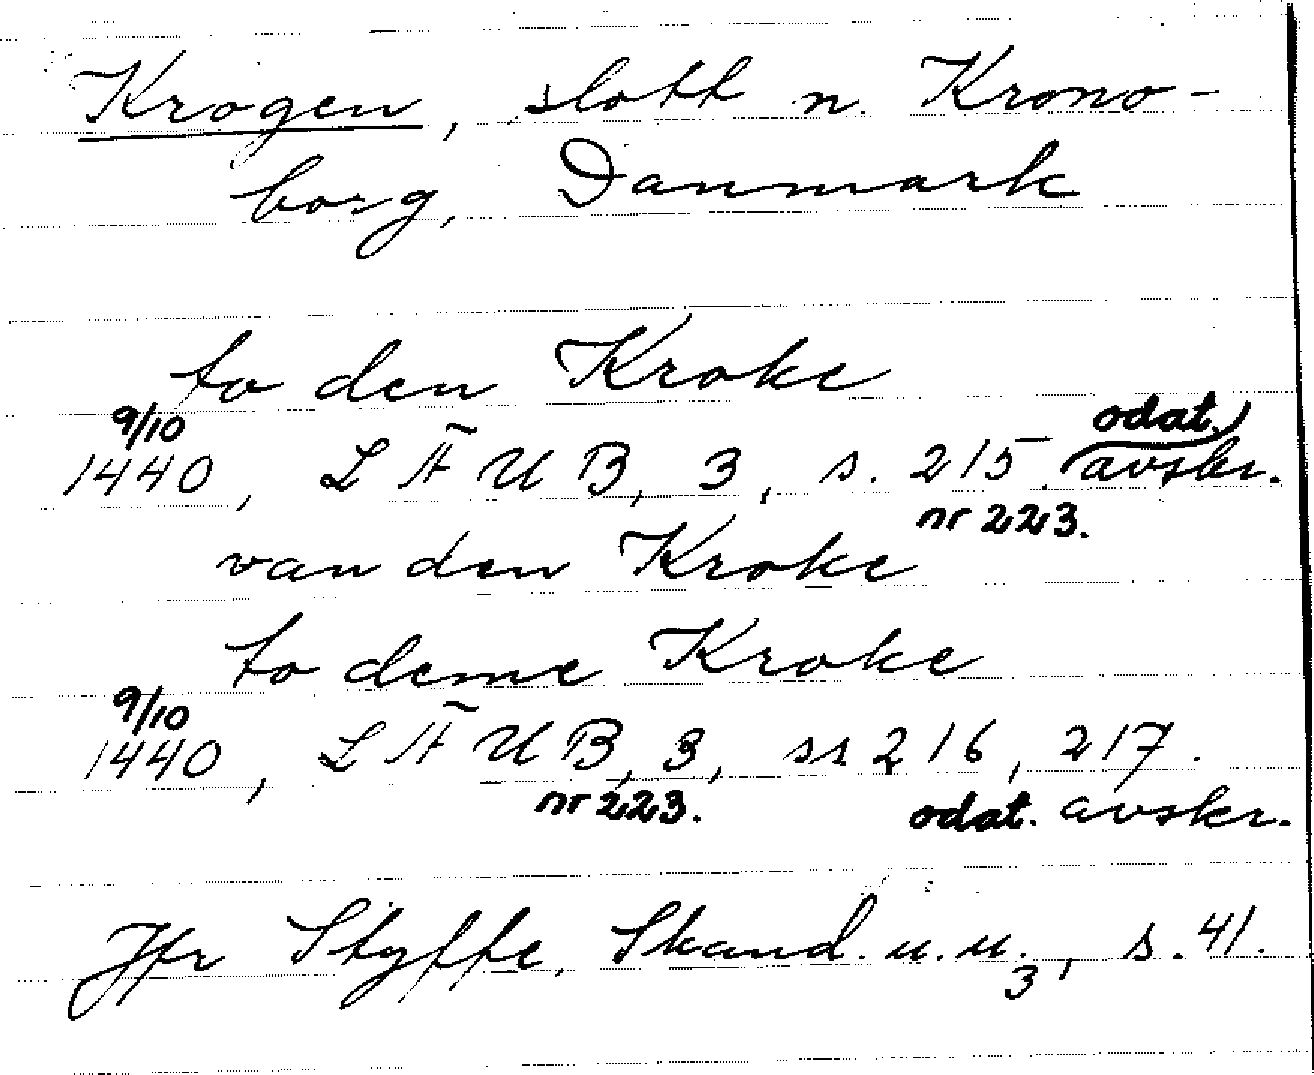 Krogen, slott n. Krono-
borg, Danmark
to den Kroke
9/10 odat.
1440, LÄUB, 3, s. 215. avskr.
nr 223.
van den Kroke
to deme Kroke
9/10
1440, LÄUB, 3, ss 216, 217.
nr 223. odat. avskr.
Jfr Styffe, Skand. u. u. 3, s. 41.